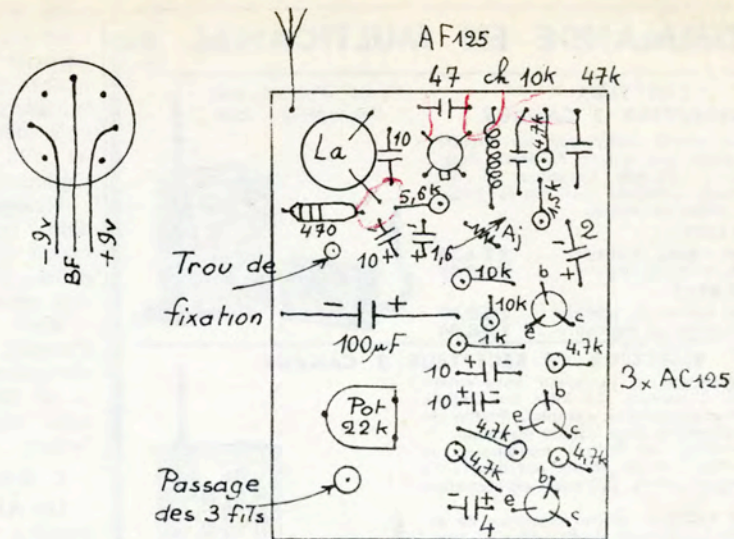 AF125
47 ch 10k 47k
La
10
4,7k
5,6k
1,5k
470
10 +
- + 1,6
Aj
- 2 +
-9v
BF
+9v
Trou de
fixation
10k
b
e c
- +
100µF
10k
1k
4,7k
10 + -
10 + -
3x AC125
Pot
22k
b
e c
4,7k
4,7k
4,7k
Passage
des 3 fils
b
e c
- +
4